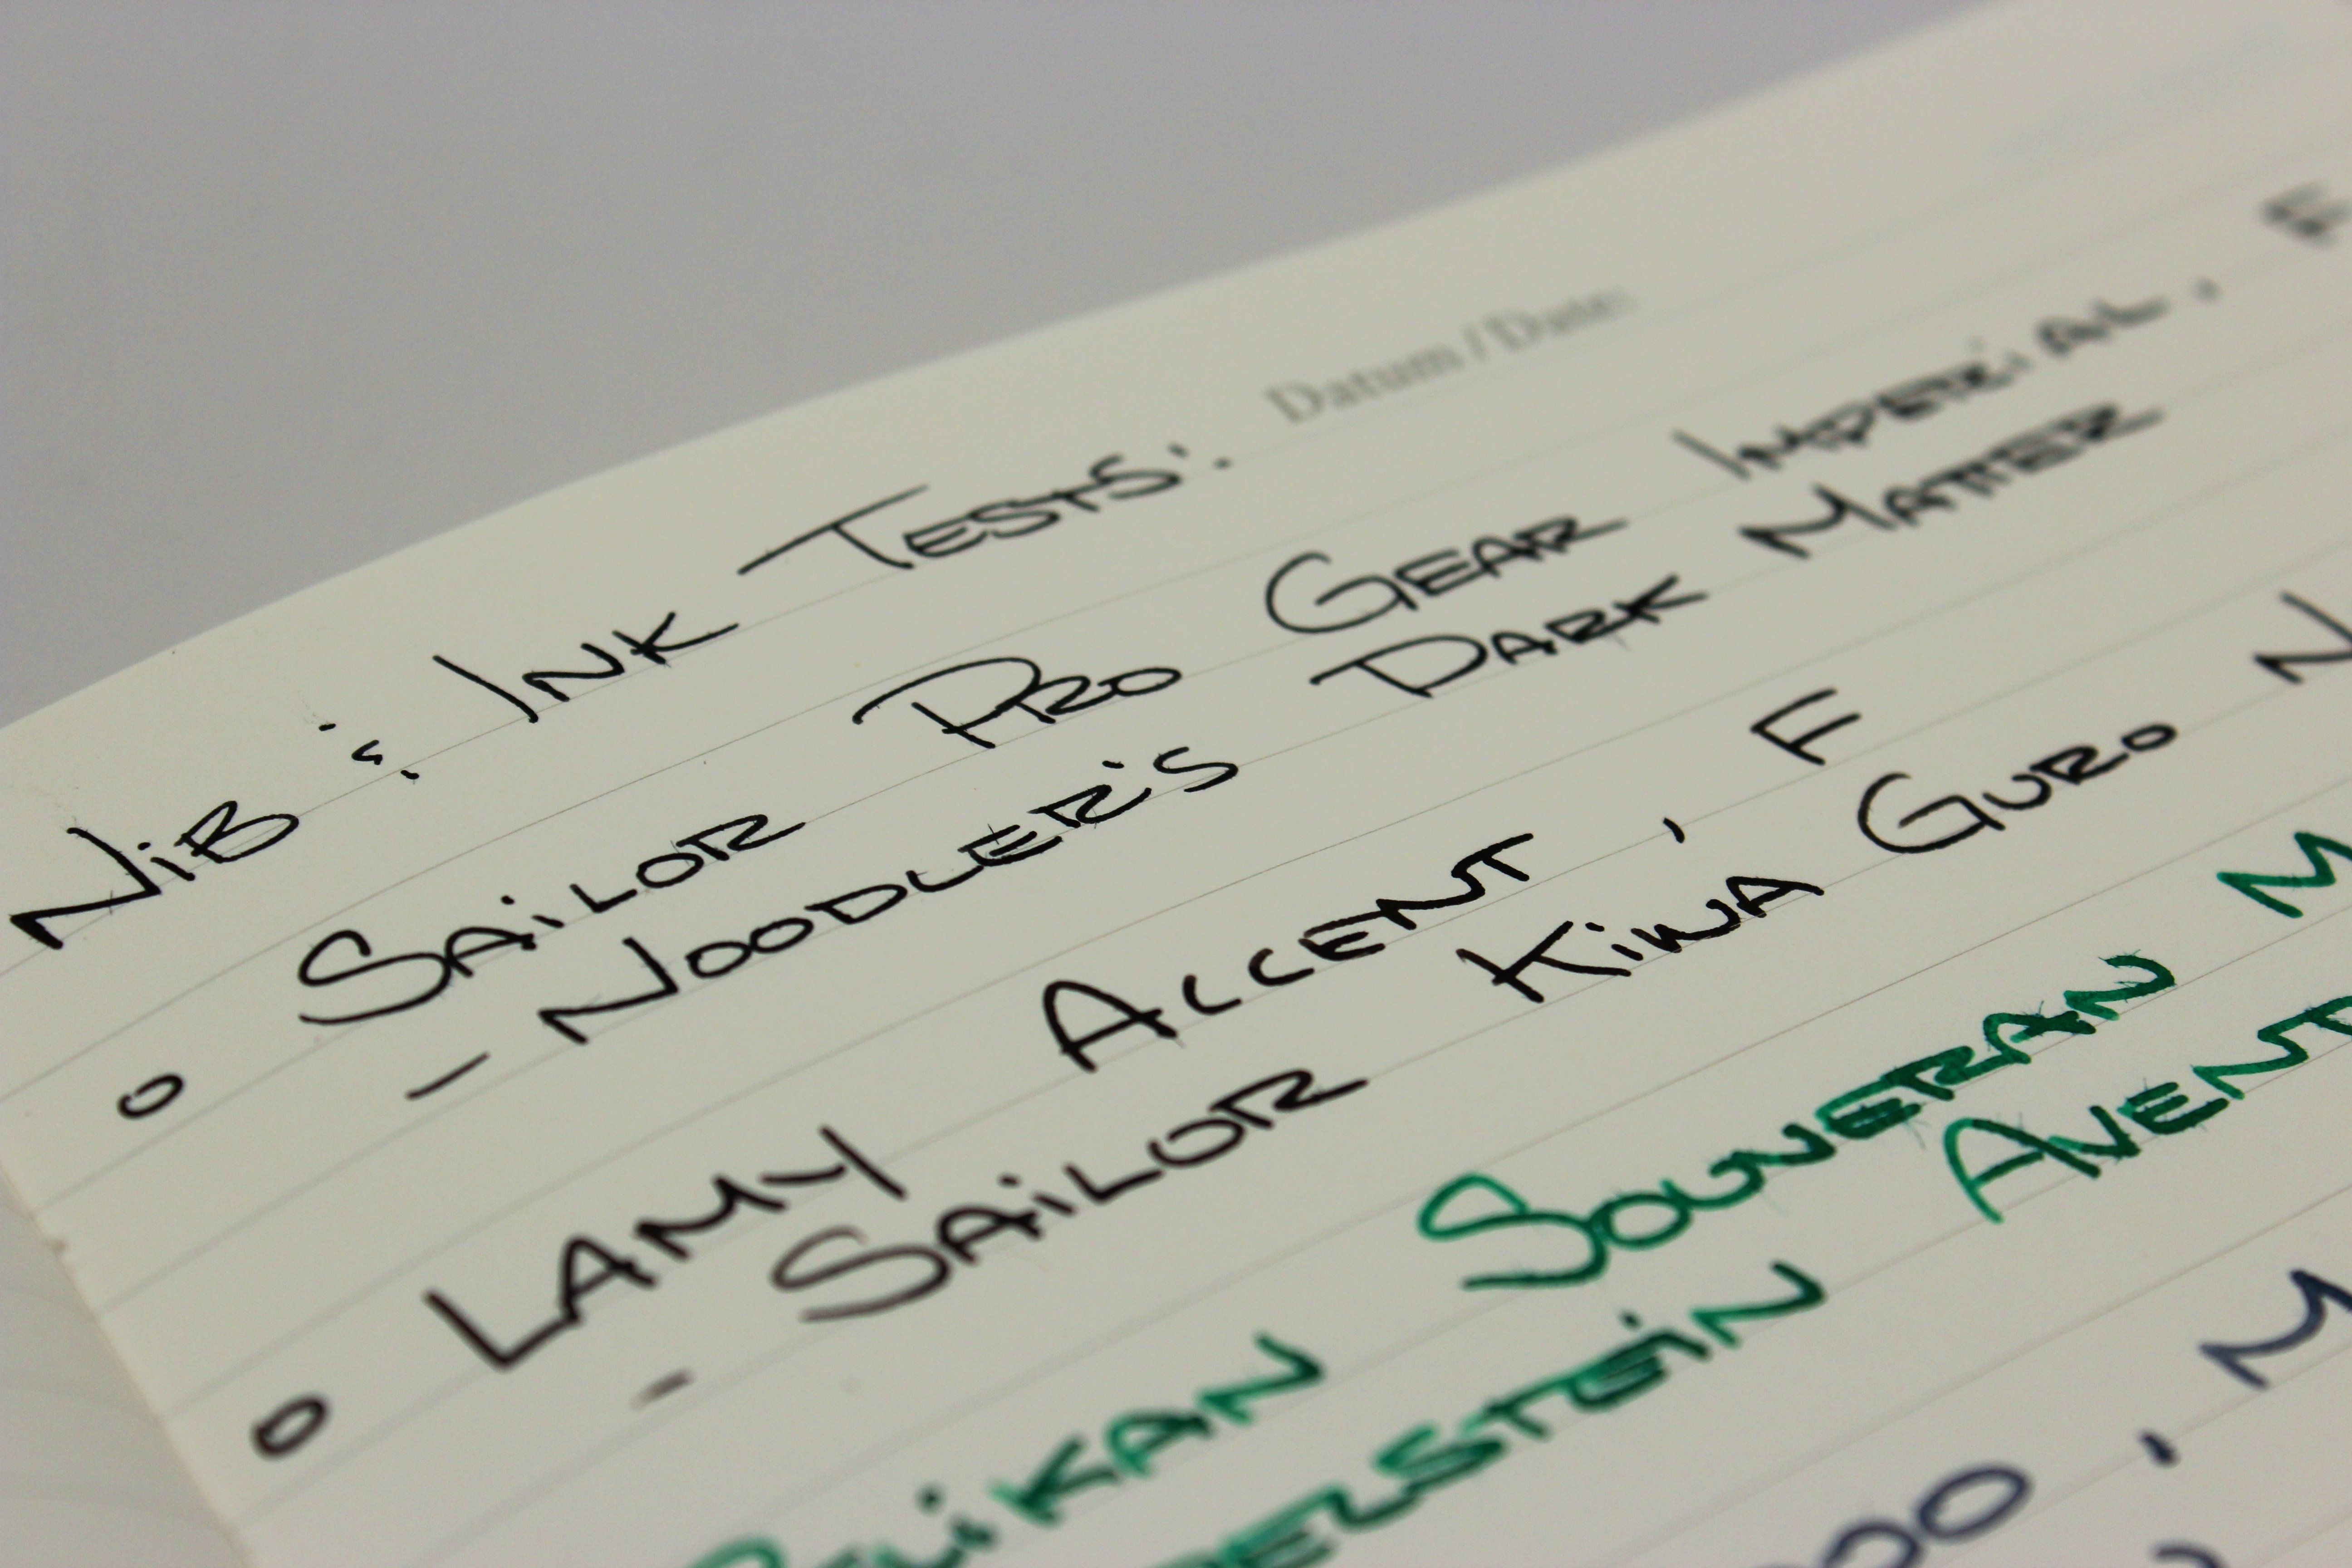 Datum / Date:
NiB & INK TESTS:
o SAiLOR PRO GEAR IMPERiAL, F
- NOODLER'S DARK MATTER
o LAMY ACCENT, F
- SAiLOR KiWA GURO N
PELiKAN SOUVERAN M
EDELSTEiN AVENT
000, M